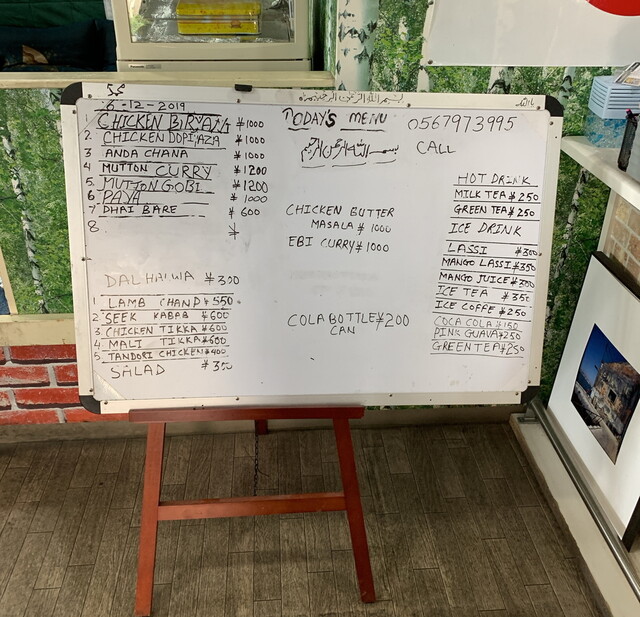 بسم الله الرحمن الرحيم
6-12-2019
TODAY'S MENU
0567973995
CALL
بسم الله الرحمن الرحيم
1 CHICKEN BIRYANI ¥1000
2 CHICKEN DOPIAZA ¥1000
3 ANDA CHANA ¥1000
4 MUTTON CURRY ¥1200
5. MUTTON GOBI ¥1200
6 PAYA ¥1000
7 DHAI BARE ¥600
8. ¥
DAL HALWA ¥300
1 LAMB CHAMP ¥550
2 SEEK KABAB ¥600
3 CHICKEN TIKKA ¥600
4 MALI TIKKA ¥600
5 TANDORI CHICKEN ¥400
SALAD ¥350
CHICKEN BUTTER
MASALA ¥1000
EBI CURRY ¥1000
COLA BOTTLE ¥200
CAN
HOT DRINK
MILK TEA ¥250
GREEN TEA ¥250
ICE DRINK
LASSI ¥300
MANGO LASSI ¥350
MANGO JUICE ¥300
ICE TEA ¥350
ICE COFFE ¥250
COCA COLA ¥150
PINK GUAVA ¥250
GREEN TEA ¥250